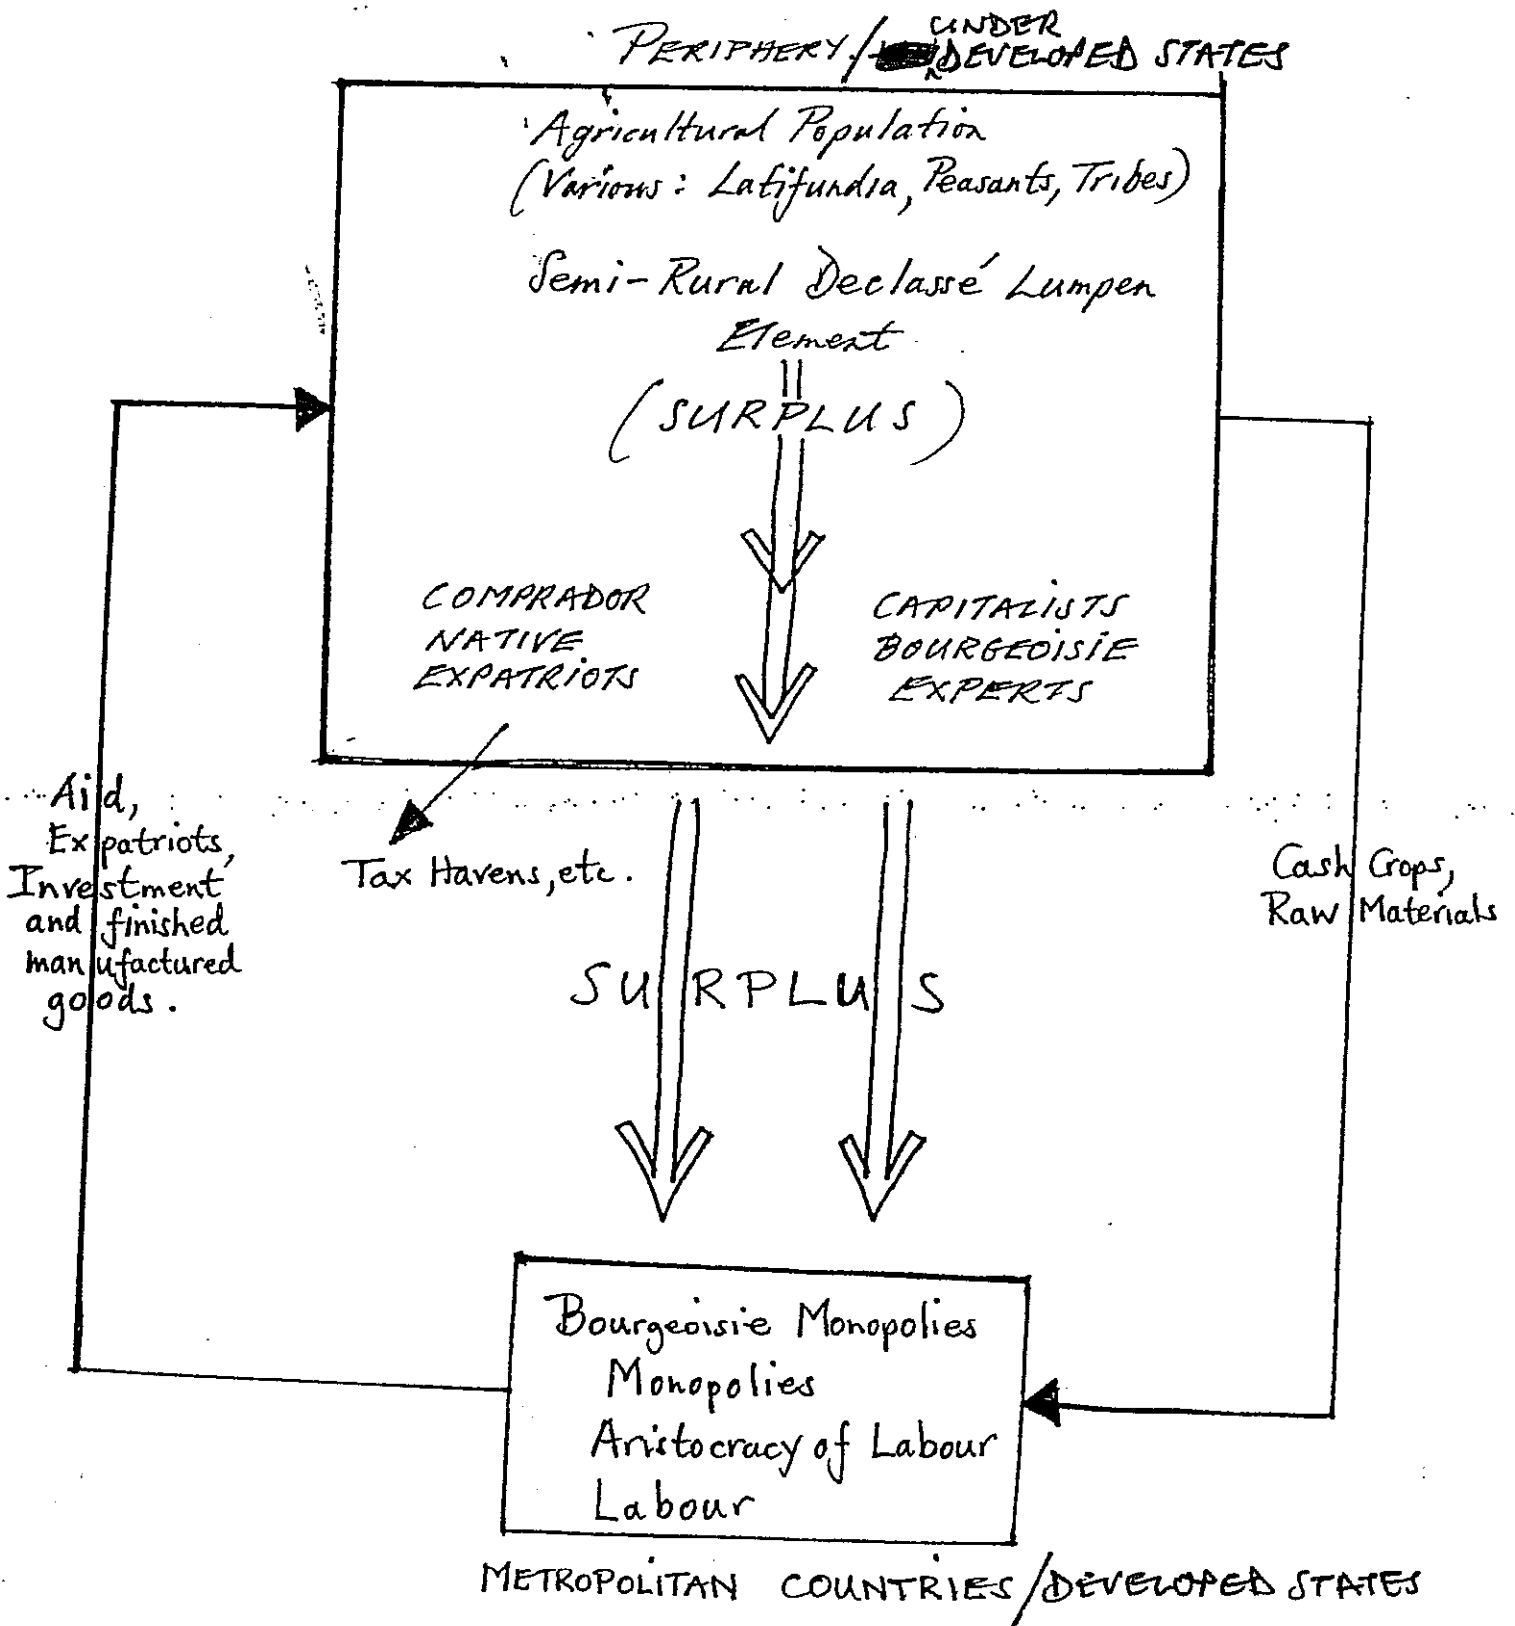 UNDER
PERIPHERY/DEVELOPED STATES
Agricultural Population
(Various: Latifundia, Peasants, Tribes)
Semi-Rural Declassé Lumpen
Element
(SURPLUS)
COMPRADOR
NATIVE
EXPATRIOTS
CAPITALISTS
BOURGEOISIE
EXPERTS
Aid,
Expatriots,
Investment
and finished
manufactured
goods.
Tax Havens, etc.
Cash Crops,
Raw Materials
SURPLUS
Bourgeoisie Monopolies
Monopolies
Aristocracy of Labour
Labour
METROPOLITAN COUNTRIES/DEVELOPED STATES